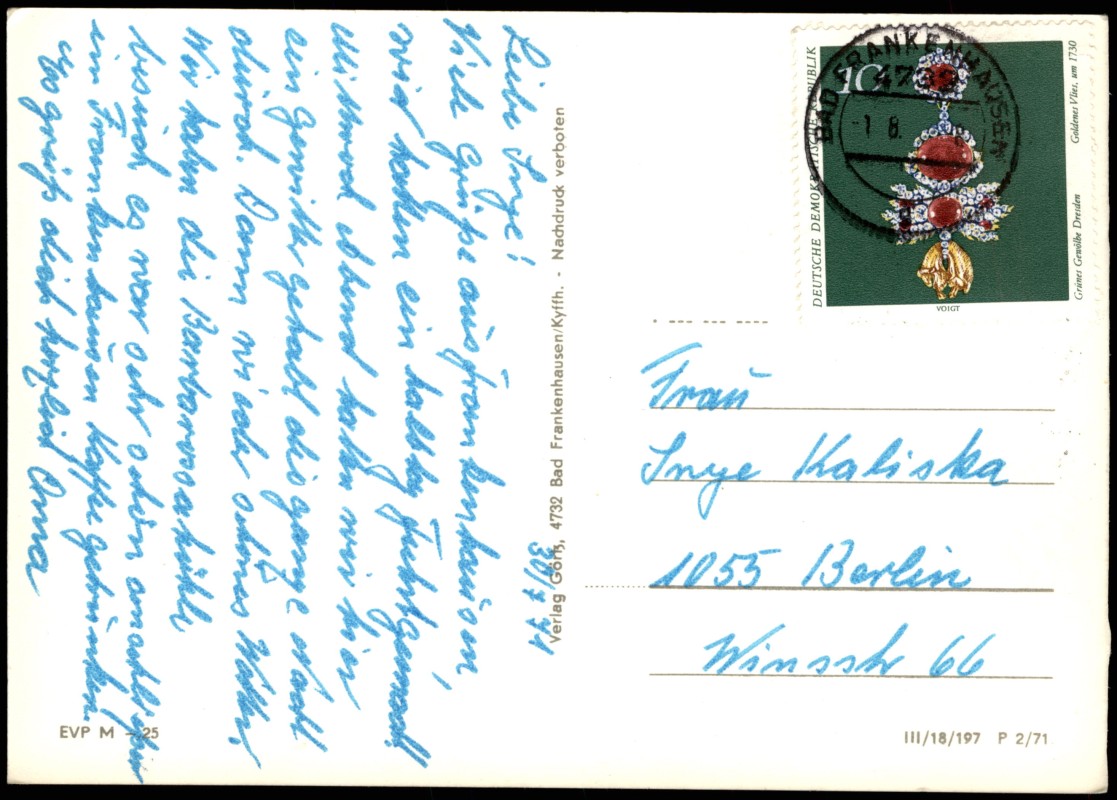 30/7 71
Liebe Inge!
Viele Grüße aus Frankenhausen,
wir haben ein halbtag
Mittwoch Abend haben wir hir
ein Gewitter gehabt die ganze Nacht
durch. Dann wieder schönes Wetter,
Wir haben die Barbarossahöhle
besucht es war sehr schön anschließen
in Frankenhausen Kaffee getrunken.
Es grüßt dich herzlich Oma
Verlag Görtz, 4732 Bad Frankenhausen/Kyffh. - Nachdruck verboten
EVP M -.25
DEUTSCHE DEMOKRATISCHE REPUBLIK
10
Goldenes Vlies, um 1730
Grünes Gewölbe Dresden
VOIGT
BAD FRANKENHAUSEN
4732
-1. 8.
Frau
Inge Kaliska
1055 Berlin
Winsstr 66
III/18/197 P 2/71